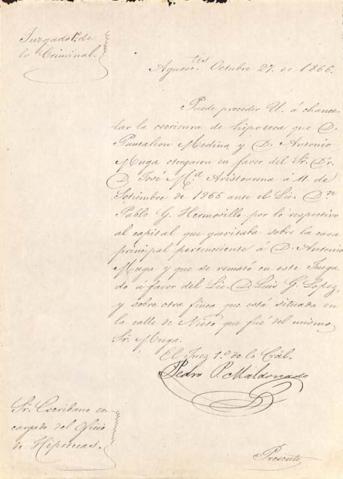 Juzgado 1º de
lo Criminal.
Aguasc.tes Octubre 27. de 1866.
Puede proceder U. á chance-
lar la escritura de hipoteca que D.
Pantaleon Medina y D. Antonio
Muga otorgaron en favor del Sr. Dr.
D. José M.a á 11 de
Setiembre de 1865 ante el Lic. Dn.
Pablo G. Hermosillo por lo respectivo
al capital que gravitaba sobre la casa
principal perteneciente á D. Antonio
Muga y que se remató en este Juzga-
do á favor del Lic. D. Luis G. Lopez,
y sobre otra finca que está situada en
la calle de que fué del mismo
Sr. Muga.
El Juez 1.º de lo
Pedro P. Maldonado
Sr. Escribano en-
cargado del Oficio
de Hipotecas.
Presente